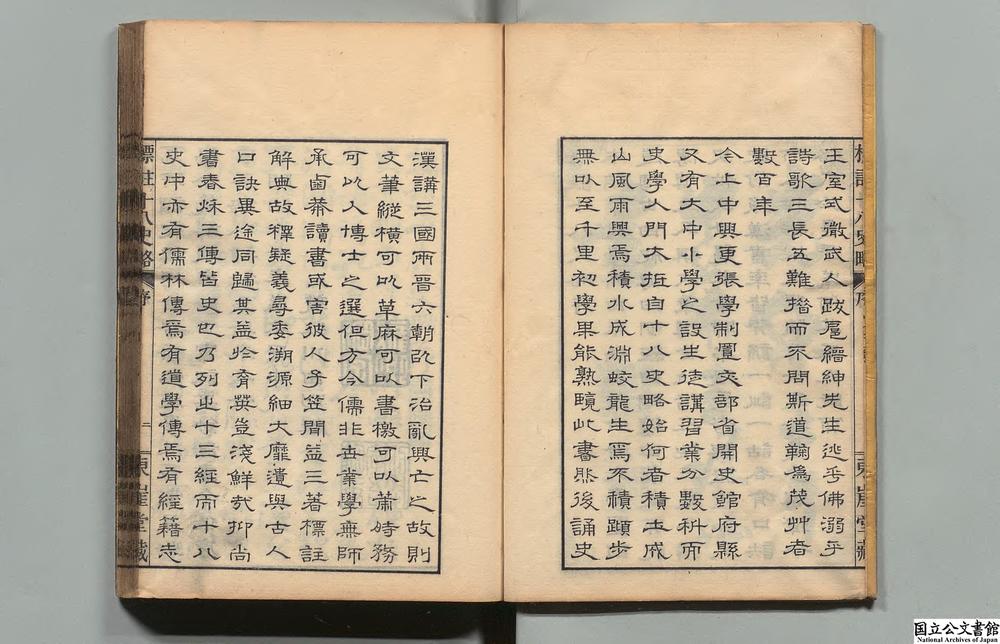 王室式微武人跋扈縉紳先生逃乎佛溺乎
詩歌三長五難措而不問斯道鞠為茂艸者
數百年
今上中興更張學制置文部省開史館府縣
又有大中小學之設生徒講習業分數科而
史學入門大抵自十八史略始何者積土成
山風雨興焉積水成淵蛟龍生焉不積蹞步
無以至千里初學果能熟曉此書然後誦史
標註十八史略 序
東崖堂藏
漢講三國兩晉六朝以下治亂興亡之故則
文筆縱橫可以草麻可以書檄可以蕭時務
可以入博士之選但方今儒非世業學無師
承鹵莽讀書或害彼人子笠間益三著標註
解典故釋疑義尋委溯源細大靡遺與古人
口訣異途同歸其益於育英豈淺鮮哉抑尚
書春秋三傳皆史也乃列之十三經而十八
史中亦有儒林傳焉有道學傳焉有經籍志
標註十八史略 序 二 東崖堂藏
国立公文書館
National Archives of Japan